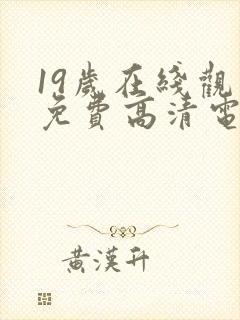 19歲在綫觀
免費高清電
黃漢升